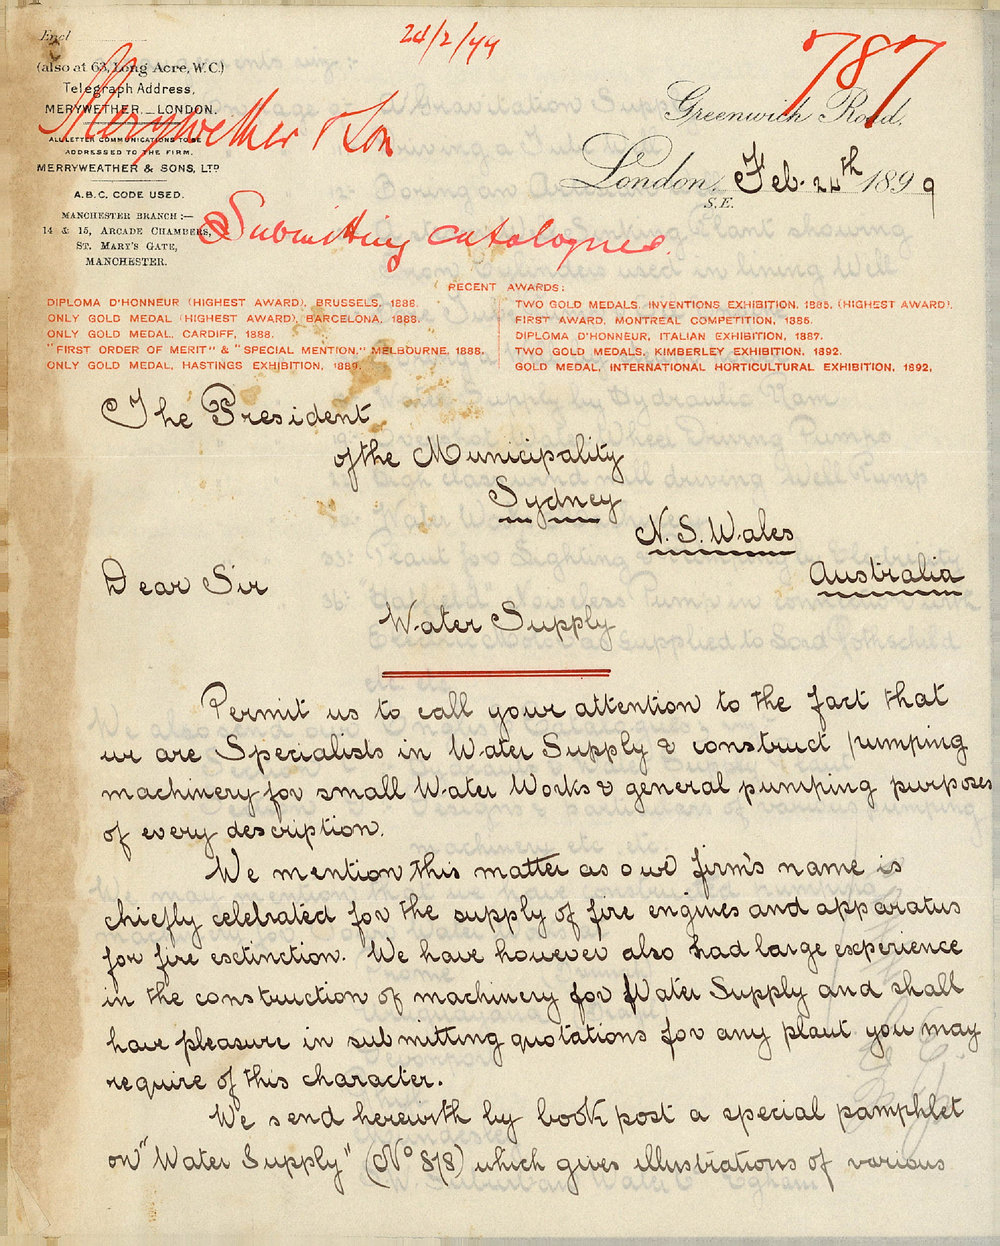 Encl
24/2/99
787
(also at 63, Long Acre, W.C.)
Telegraph Address,
MERYWETHER_LONDON.
Merryweather & Son
ALL LETTER COMMUNICATIONS TO BE
ADDRESSED TO THE FIRM.
MERRYWEATHER & SONS, LTD
A.B.C. CODE USED.
MANCHESTER BRANCH :—
14 & 15, ARCADE CHAMBERS,
ST. MARY'S GATE,
MANCHESTER.
Greenwich Road,
London, Feb. 24th 1899
S.E.
Submitting catalogues.
RECENT AWARDS:
DIPLOMA D'HONNEUR (HIGHEST AWARD), BRUSSELS, 1888.
ONLY GOLD MEDAL (HIGHEST AWARD), BARCELONA, 1888.
ONLY GOLD MEDAL, CARDIFF, 1888.
"FIRST ORDER OF MERIT" & "SPECIAL MENTION," MELBOURNE, 1888.
ONLY GOLD MEDAL, HASTINGS EXHIBITION, 1889.
TWO GOLD MEDALS, INVENTIONS EXHIBITION, 1885, (HIGHEST AWARD).
FIRST AWARD, MONTREAL COMPETITION, 1886.
DIPLOMA D'HONNEUR, ITALIAN EXHIBITION, 1887.
TWO GOLD MEDALS, KIMBERLEY EXHIBITION, 1892.
GOLD MEDAL, INTERNATIONAL HORTICULTURAL EXHIBITION, 1892,
The President
of the Municipality
Sydney
N. S. Wales
Australia
Dear Sir
Water Supply
Permit us to call your attention to the fact that
we are Specialists in Water Supply & construct pumping
machinery for small Water Works & general pumping purposes
of every description.
We mention this matter as our firm's name is
chiefly celebrated for the supply of fire engines and apparatus
for fire esctinction. We have however also had large experience
in the construction of machinery for Water Supply and shall
have pleasure in submitting quotations for any plant you may
require of this character.
We send herewith by book post a special pamphlet
on "Water Supply" (No 878) which gives illustrations of various